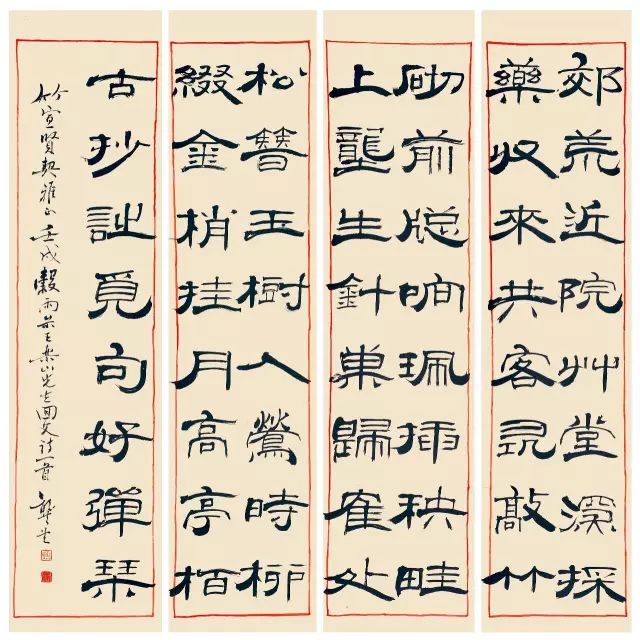 郊荒近院艸堂深採
藥收來共客尋敲竹
砌前牕响珮插秧畦
上壟生針巢歸雀处
松簪玉樹入鶯時柳
綴金梢挂月高亭栢
古抄詩覓句好彈琹
竹宣賢契雅正 壬戌穀雨 王 山先生回文詩一首 龔望